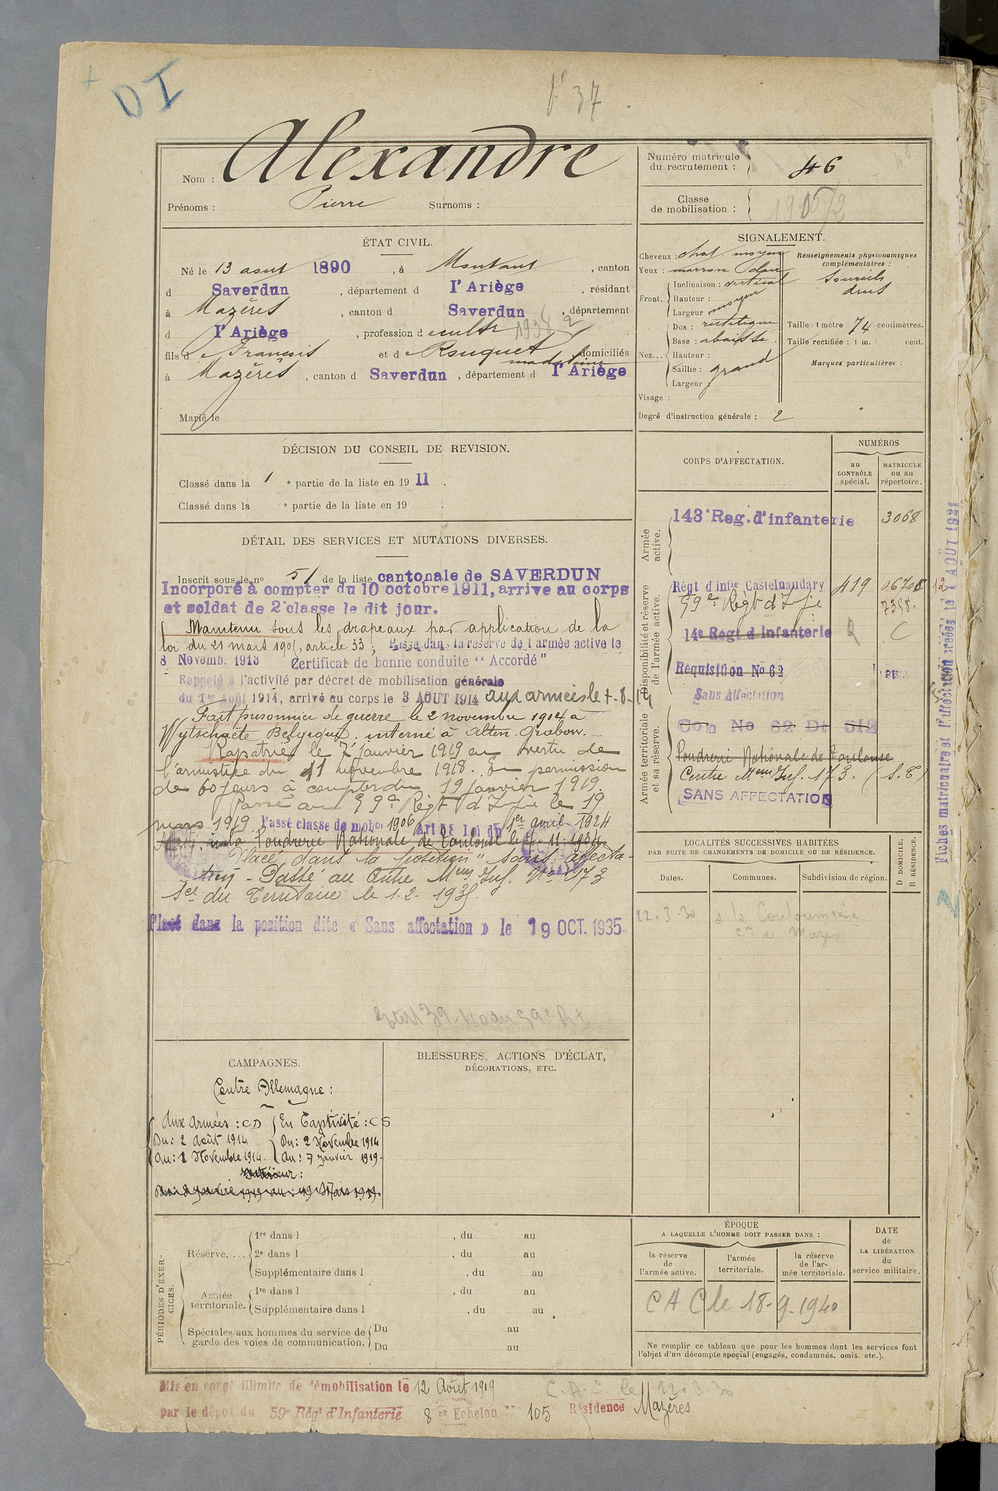 DI
f° 37
Nom : Alexandre
Prénoms : Pierre Surnoms :
Numéro matricule du recrutement : 46
Classe de mobilisation :
ÉTAT CIVIL.
Né le 13 aout 1890, à Montaut, canton
d Saverdun, département d l'Ariège, résidant
à Mazères, canton d Saverdun, département
d l'Ariège, profession d cultr
fils de François et de Rouquet domiciliés
à Mazères, canton d Saverdun, département d l'Ariège
Marié le
SIGNALEMENT.
Cheveux : chat moyen
Yeux : marron clair
Front. Inclinaison : vertical
Hauteur :
Largeur : moyen
Nez... Dos : rectiligne
Base : abaissée
Hauteur :
Saillie : grand
Largeur :
Visage :
Renseignements physionomiques complémentaires :
Sourcils
droits
Taille : 1 mètre 74 centimètres.
Taille rectifiée : 1 m. cent.
Marques particulières :
Degré d'instruction générale : 2
DÉCISION DU CONSEIL DE REVISION.
Classé dans la 1 e partie de la liste en 1911.
Classé dans la e partie de la liste en 19 .
DÉTAIL DES SERVICES ET MUTATIONS DIVERSES.
Inscrit sous le no 51 de la liste cantonale de SAVERDUN
Incorporé à compter du 10 octobre 1911, arrivé au corps
et soldat de 2e classe le dit jour.
Maintenu sous les drapeaux par application de la
loi du 21 mars 1905, article 33; Passé dans la réserve de l'armée active le
8 Novemb. 1913 Certificat de bonne conduite "Accordé"
Rappelé à l'activité par décret de mobilisation générale
du 1er Août 1914, arrivé au corps le 3 AOUT 1914 aux armées le
Fait prisonnier de guerre le 2 novembre 1914 à
Wytschaete Belgique. interné à Alten Grabow.
Rapatrié le 7 Janvier 1919 en vertu de
l'armistice du 11 novembre 1918. En permission
de 60 jours à compter du 19 janvier 1919.
Passé au 59e Régt d'Ifie le 19
mars 1919. Passé classe de mobon 1906 Art 58 Loi du 1er avril 1924
Poudrerie Nationale de Toulouse le
Placé dans la position "sans affecta-
tion - Passé au Centre Mem Inf. No 173
Son du Territoire le 1.2.1935.
Placé dans la position dite « Sans affectation » le 19 OCT. 1935
CORPS D'AFFECTATION.
NUMÉROS
au CONTRÔLE spécial.
MATRICULE ou au répertoire.
Armée active.
143e Reg. d'infanterie 3068
Disponibilité et réserve de l'armée active.
Régt d'infie Castelnaudary 419
59e Régt d'Ifie 7358.
14e Regt d'Infanterie
Réquisition No 62
Sans Affectation
Armée territoriale et sa réserve.
Poudrerie Nationale de Toulouse
Centre Mem Inf. 173. (S.T)
SANS AFFECTATION
Fiches matriculaire et d'affectation créées le 1 AOUT 1921
LOCALITÉS SUCCESSIVES HABITÉES
PAR SUITE DE CHANGEMENTS DE DOMICILE OU DE RÉSIDENCE.
Dates. Communes. Subdivision de région. D DOMICILE. R RÉSIDENCE.
22.3.30
CAMPAGNES.
Contre Allemagne :
Aux Armées : CD
Du : 2 Août 1914
Au : 1 Novembre 1914.
En Captivité : CS
Du : 2 Novembre 1914
Au : 7 Janvier 1919.
Intérieur :
BLESSURES, ACTIONS D'ÉCLAT,
DÉCORATIONS, ETC.
PÉRIODES D'EXERCICES.
Réserve. ... 1re dans l , du au
2e dans l , du au
Supplémentaire dans l , du au
Armée territoriale. 1re dans l , du au
Supplémentaire dans l , du au
Spéciales aux hommes du service de garde des voies de communication. Du au
Du au
ÉPOQUE
A LAQUELLE L'HOMME DOIT PASSER DANS :
la réserve de l'armée active.
l'armée territoriale.
la réserve de l'armée territoriale.
DATE de LA LIBÉRATION du service militaire.
CAC le 18-9-1940
Ne remplir ce tableau que pour les hommes dont les services font
l'objet d'un décompte spécial (engagés, condamnés, omis, etc.).
Mis en congé illimité de démobilisation le 12 Août 1919 C.A.C. le 22.3.30
par le dépôt du 59e Rég' d'Infanterie 8e Echelon No 105 Résidence Mazères